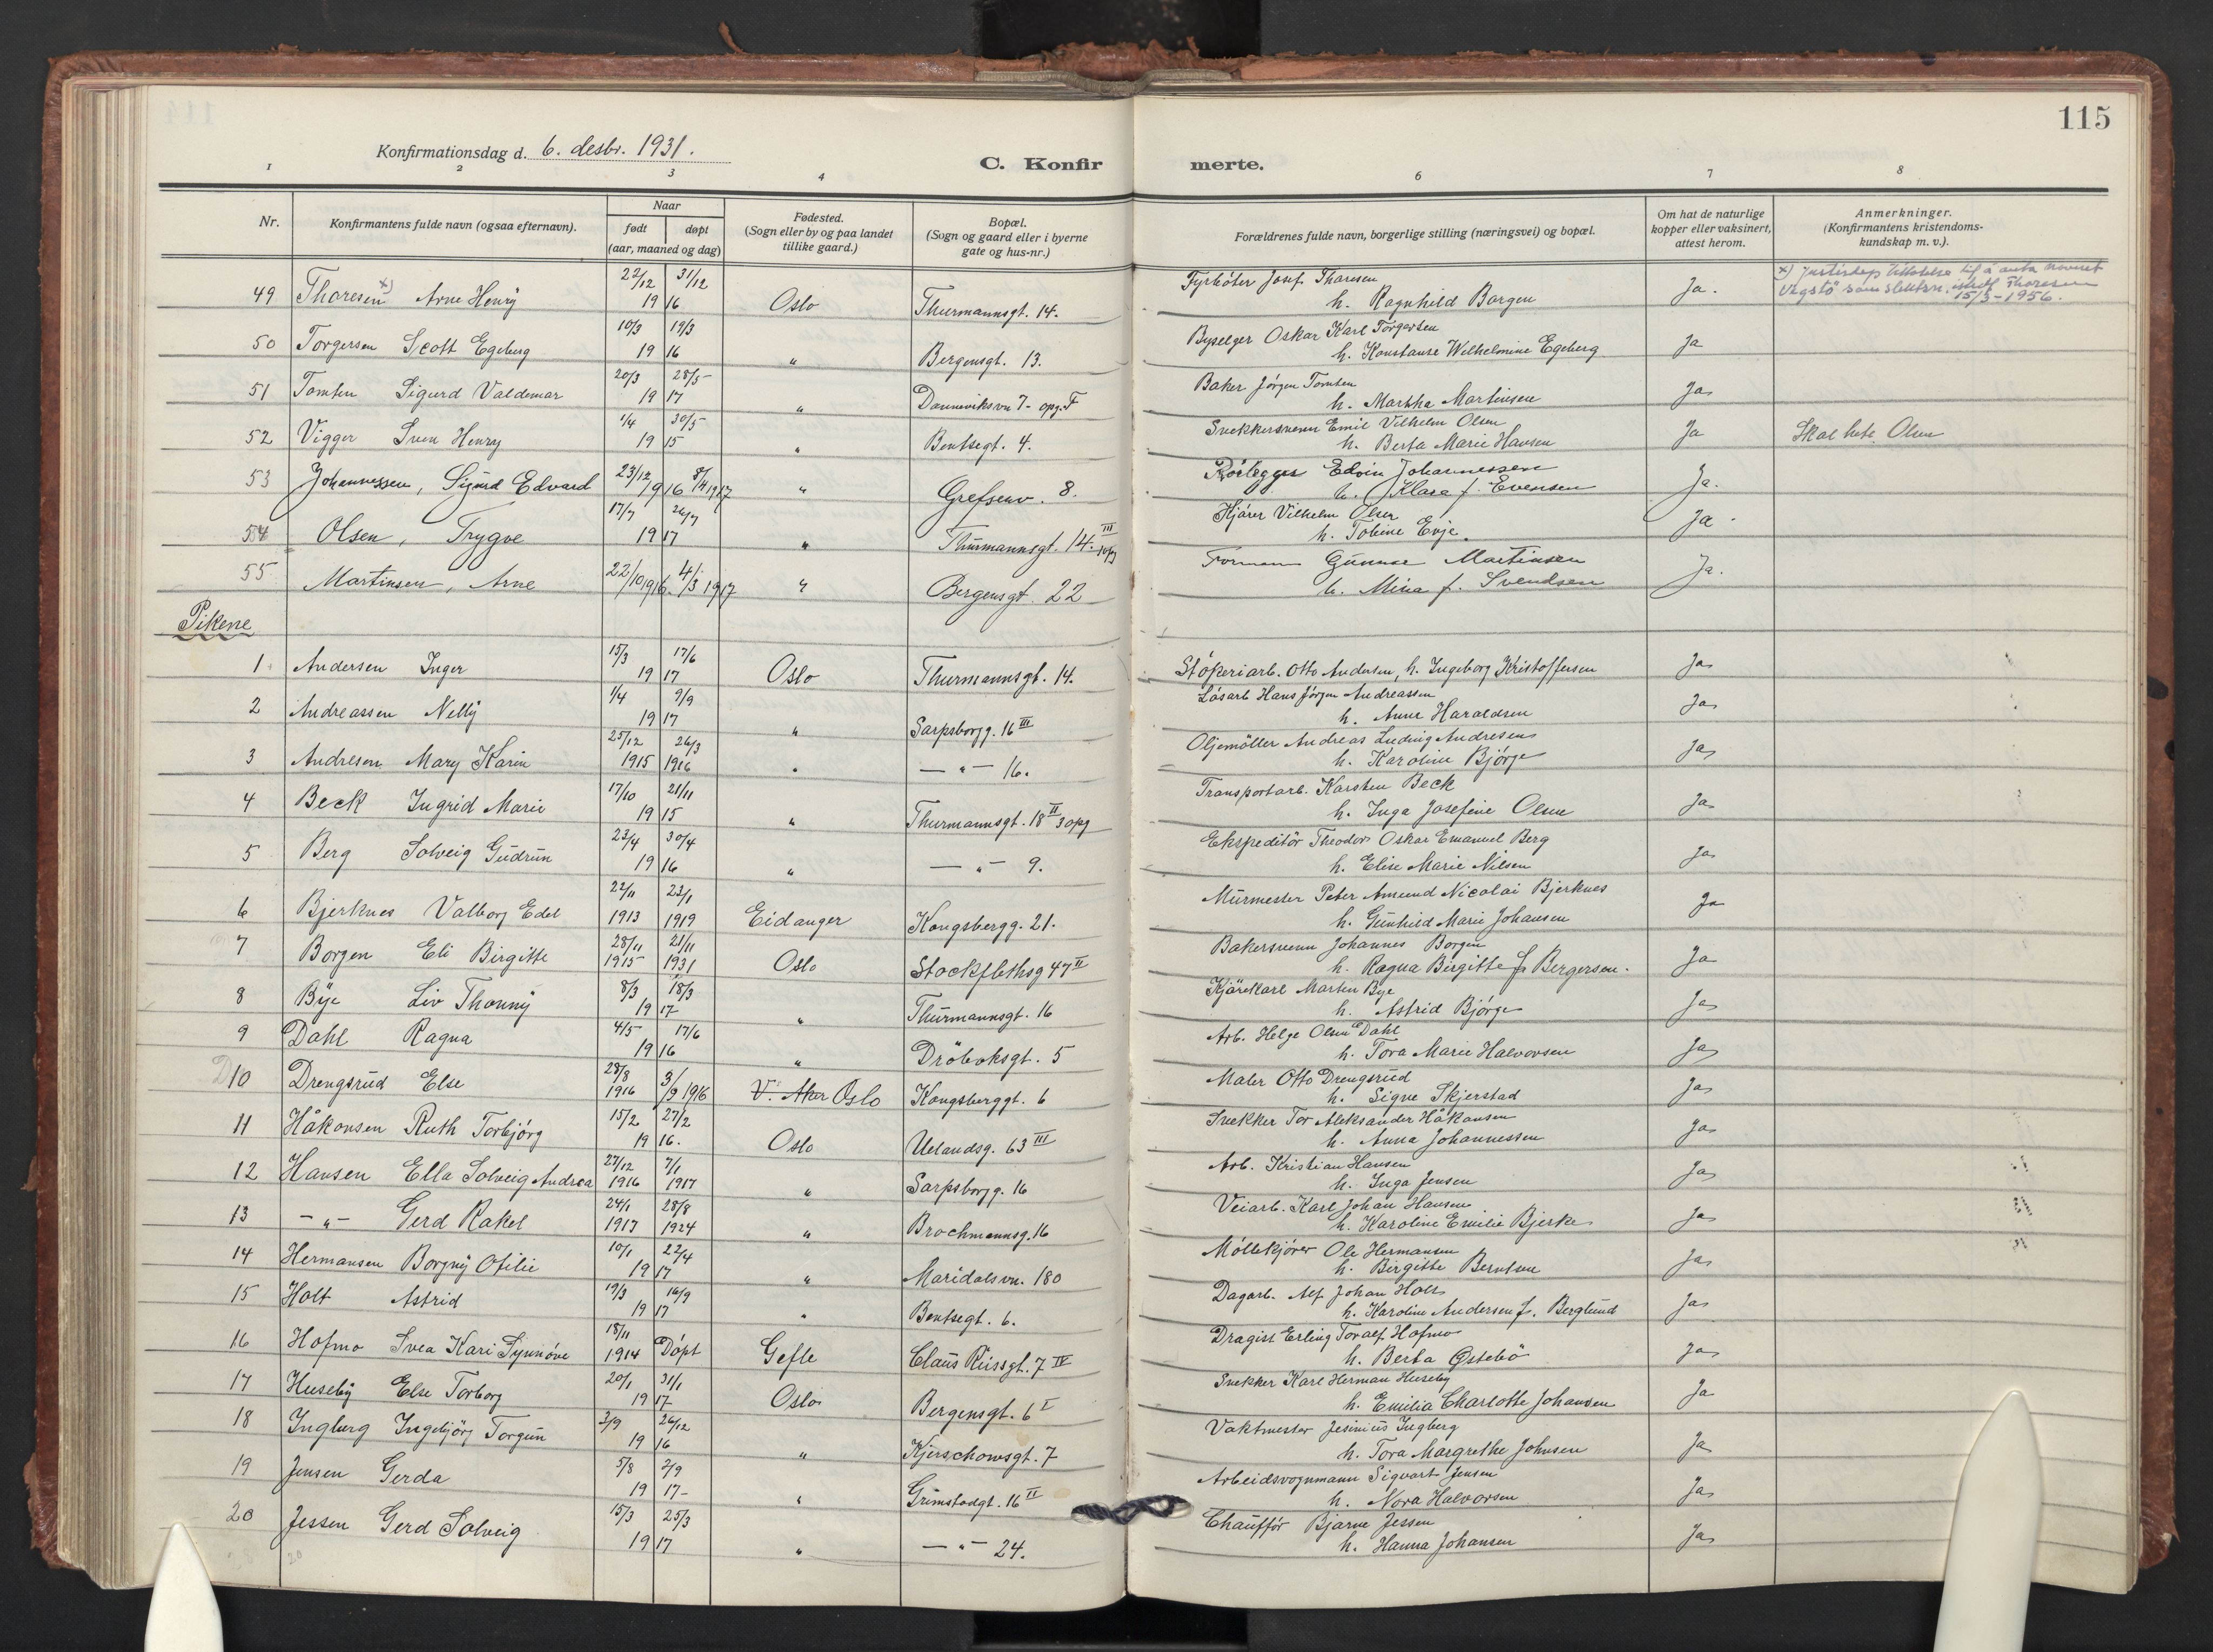 115
Konfirmationsdag d. 6. desbr. 1931.
C. Konfirmerte.
1 2 3 4 6 7 8
Nr. | Konfirmantens fulde navn (ogsaa efternavn). | Naar født døpt (aar, maaned og dag) | Fødested. (Sogn eller by og paa landet tillike gaard.) | Bopæl. (Sogn og gaard eller i byerne gate og hus-nr.) | Forældrenes fulde navn, borgerlige stilling (næringsvei) og bopæl. | Om hat de naturlige kopper eller vaksinert, attest herom. | Anmerkninger. (Konfirmantens kristendoms-kundskap m. v.).
49 Thoresen x) Arne Henry 22/12 31/12 1916 Oslo Thurmannsgt. 14. Fyrbøter Josef Thoresen h. Ragnhild Borgen Ja. x) Justisdep tillatelse til å anta navnet Vegstö som slektsn. istedf. Thoresen 15/3-1956.
50 Torgersen Scott Egeberg 10/3 19/3 1916 " Bergensgt. 13. Byselger Oskar Karl Torgersen h. Konstanse Wilhelmine Egeberg Ja
51 Tomten Sigurd Valdemar 20/3 28/5 1917 " Danneviksvn 7- opg. F Baker Jörgen Tomten h. Martha Martinsen Ja
52 Vigger Sven Henry 1/4 30/5 1915 " Bentsegt. 4. Snekkersvenn Emil Vilhelm Olsen h. Berta Marie Hansen Ja Skal hete Olsen
53 Johannessen, Sigurd Edvard 23/12 1916 8/4 1917 " Grefsenv. 8. Rörlegger Edvin Johannessen h. Klara f. Evensen Ja.
54 Olsen, Trygve 17/7 26/7 1917 " Thurmannsgt. 14. III opg Kjører Vilhelm Olsen h. Tobine Evje. Ja.
55 Martinsen, Arne 22/10 1916. 4/3 1917 " Bergensgt. 22 Forman Gunnar Martinsen h. Mina f. Svendsen Ja.
Pikene
1 Andersen Inger 15/3 17/6 1917 Oslo Thurmannsgt. 14. Støperiarb. Otto Andersen, h. Ingeborg Kristoffersen Ja
2 Andreassen Nelly 1/4 9/9 1917 " Sarpsborgg. 16 III Løsarb Hans Jørgen Andreassen h. Anne Haraldsen Ja
3 Andresen Mary Karin 25/12 1915 26/3 1916 " — " — 16. Oljemöller Andreas Ludvig Andresen h. Karoline Bjørge Ja
4 Beck Ingrid Marie 17/10 21/11 1915 " Thurmannsgt. 18 II 3 opg Transportarb. Karsten Beck h. Inga Josefine Olsen Ja
5 Berg Solveig Gudrun 23/4 30/4 1916 " — " — 9. Ekspeditör Theodor Oskar Emanuel Berg h. Elise Marie Nilsen Ja
6 Bjerknes Valborg Edel 22/11 1913 23/1 1919 Eidanger Kongsbergg. 21. Murmester Peter Amund Nicolai Bjerknes h. Gunhild Marie Johansen Ja
7 Borgen Eli Birgitte 28/11 1915 21/11 1931 Oslo Stockflethsg 47 II Bakersvenn Johannes Borgen h. Ragna Birgitte f. Bergersen. Ja
8 Bye Liv Thonny 8/3 18/3 1917 " Thurmannsgt. 16 Kjørekarl Marten Bye h. Astrid Bjørge Ja
9 Dahl Ragna 4/5 17/6 1916 " Drøbaksgt. 5 Arb. Helge Olsen Dahl h. Tora Marie Halvorsen Ja
10 Drengsrud Else 28/8 1916 3/9 1916 V. Aker Oslo Kongsberggt. 6 Maler Otto Drengsrud h. Signe Skjerstad Ja
11 Håkonsen Ruth Torbjörg 15/2 27/2 1916. Oslo Uelandsg. 63 III Snekker Tor Aleksander Håkonsen h. Anna Johannessen Ja
12 Hansen Ella Solveig Andrea 27/12 1916 7/1 1917 " Sarpsborgg. 16 Arb. Kristian Hansen h. Inga Jensen Ja
13 — " — Gerd Rakel 24/1 1917 28/8 1924 " Brochmannsg. 16 Veiarb. Karl Johan Hansen h. Karoline Emilie Bjerke Ja
14 Hermansen Borgny Otilie 10/1 22/4 1917 " Maridalsvn. 180 Møllekjører Ole Hermansen h. Birgitte Berntsen Ja
15 Holt Astrid 19/3 16/9 1917 " Bentsegt. 6. Dagarb. Alf Johan Holt h. Karoline Andersen f. Berglund Ja
16 Hofmo Svea Kari Synnöve 18/11 1914 Döpt Gefle Claus Riissgt. 7 IV Dragist Erling Toralf Hofmo h. Berta Østebö Ja
17 Huseby Else Torborg 20/1 31/1 1917 Oslo Bergensgt. 6 I Snekker Karl Herman Huseby h. Emilia Charlotte Johansen Ja
18 Ingberg Ingebjörg Torgun 3/9 26/12 1916 " Kjerschowsgt. 7 Vaktmester Jesinius Ingberg h. Tora Margrethe Johnsen Ja
19 Jensen Gerda 5/8 2/9 1917- " Grimstadgt. 16 II Arbeidsvognmann Sigvart Jensen h. Nora Halvorsen Ja
20 Jessen Gerd Solveig 15/3 25/3 1917 " — " — 24. Chauffør Bjarne Jessen h. Hanna Johansen Ja